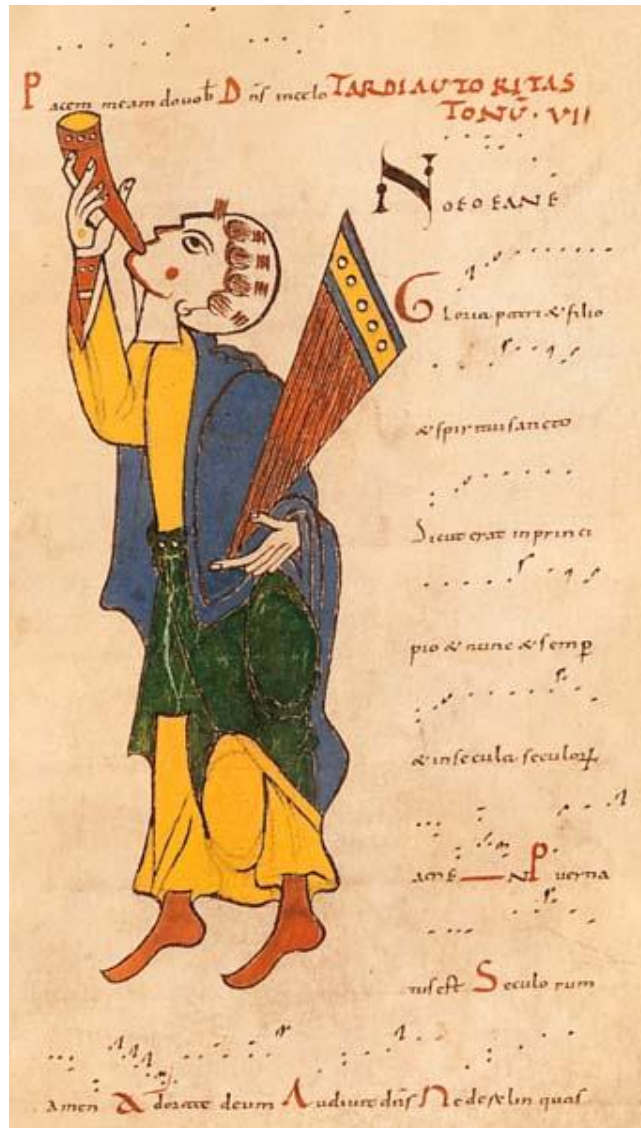 Pacem meam do vob Dns incelo TARDI AUTORITAS
TONŪ · VII
NOEOEANE
Gloria patri & filio
& spiritui sancto
Sicut erat in princi
pio & nunc & semp
& in secula seculor
amE N Puer na
tus est Seculorum
amen Adorate deum Audiuit dns Ne derelinquas